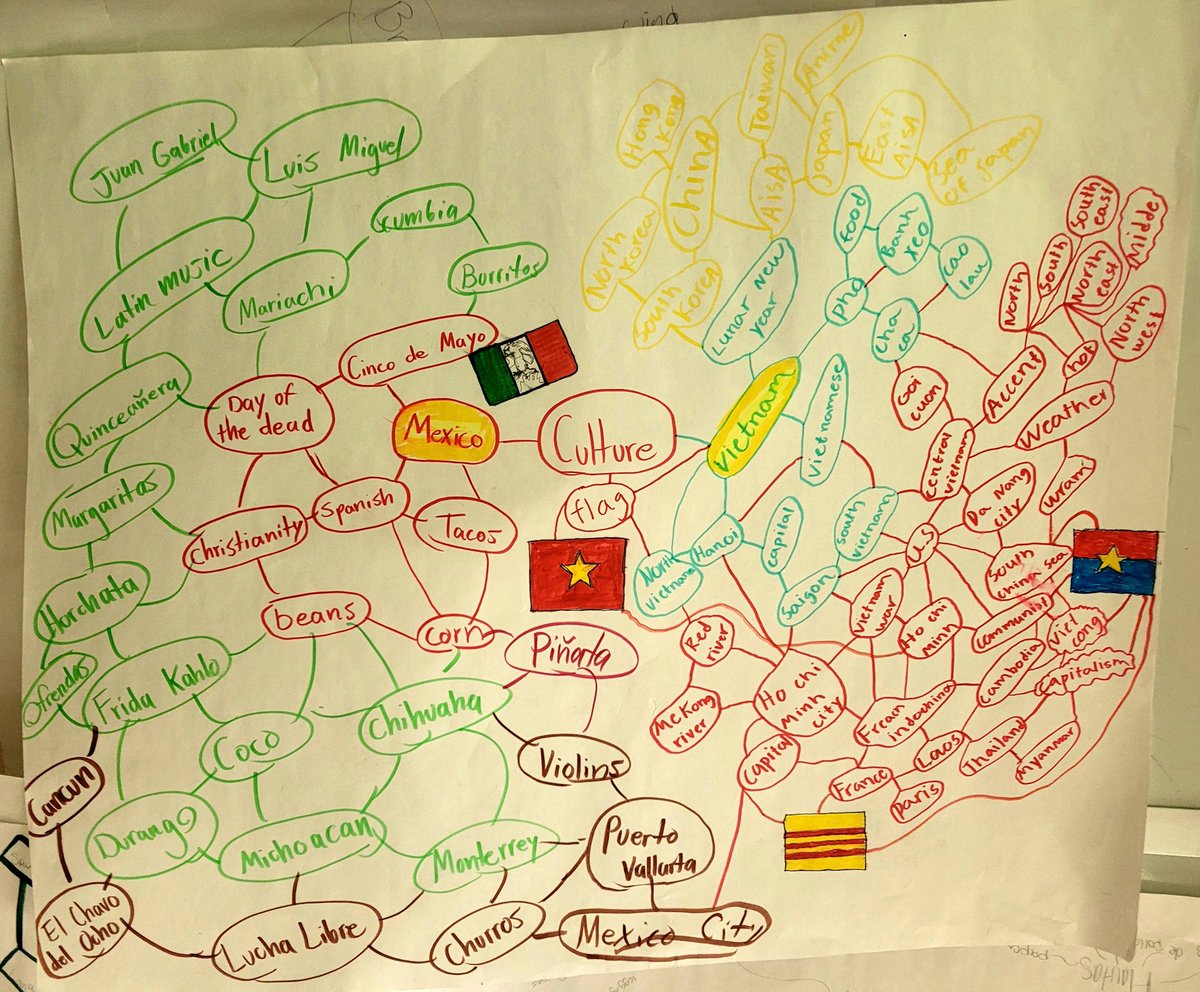 wind
Juan Gabriel
Luis Miguel
cumbia
Latin music
Mariachi
Burritos
Quinceañera
Day of
the dead
Cinco de Mayo
Mexico
Culture
flag
Margaritas
christianity
Spanish
Tacos
Horchata
beans
corn
Piñata
Ofrendas
Frida Kahlo
Coco
Chihuaha
Violins
Cancun
Durango
Michoacan
Monterrey
Puerto
Vallarta
El Chavo
del Ocho
Lucha Libre
Churros
Mexico City
Hong
Kong
China
Taiwan
Anime
Japan
East
AisA
Sea
of Japan
AisA
North
Korea
South
Korea
Lunar New
year
Vietnam
Vietnamese
food
Banh
xeo
cao
lau
pho
Cha
ca
Goi
cuon
North
South
South
east
North
east
Midde
North
west
Accent
hot
Weather
central
vietnam
Da Nang
city
wram
U.S
South
china sea
capital
south
vietnam
Hanoi
North
vietnam
Saigon
Vietnam
war
Ho chi
Minh
Communist
Viet
Cong
Capitalism
Cambodia
Red
river
Mekong
river
Ho chi
Minh
city
Capital
Frcain
indochina
Laos
Thailand
Myanmar
France
paris
papa